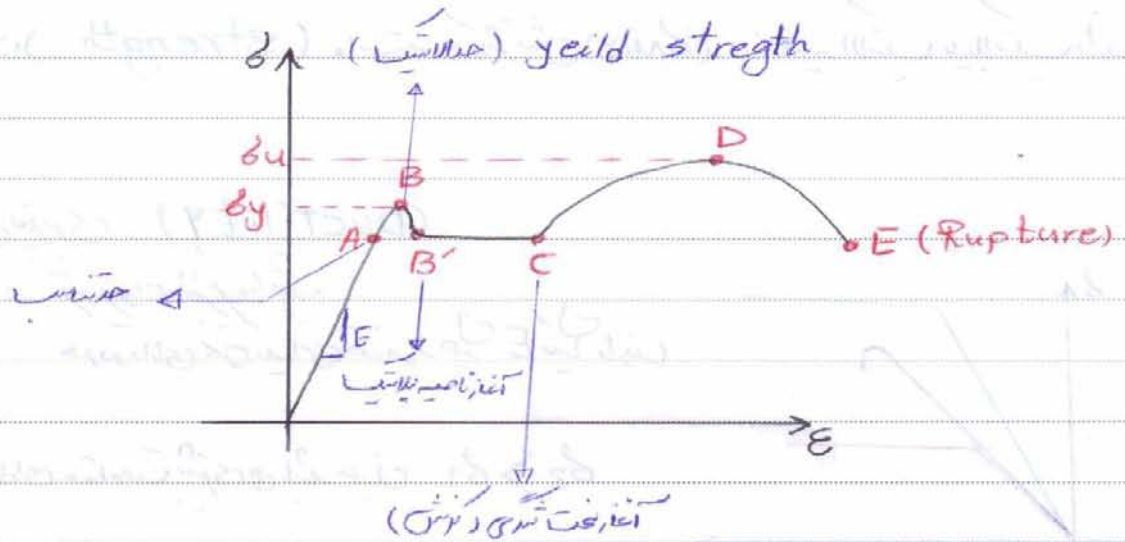 (حد الاستیک) yeild stregth
σ
σu
D
B
σy
A
B′
C
E (Rupture)
حد تناسب
E
آغاز ناحیه پلاستیک
ε
آغاز سخت شدگی (کرنش)